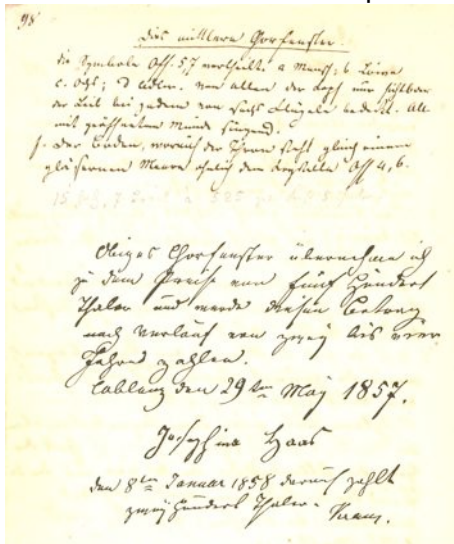 98
Das mittlere Chorfenster.
die Symbole Off. 5,7 vertheilt. a Mensch; b. Löwe
c. Ochs; d Adler. von allen der Kopf nur sichtbar
der Leib bei jedem von sechs Flügeln bedeckt. Alle
mit geöffnetem Munde singend.
f. Der Boden, worauf der Thron steht gleich einem
gläsernen Meere ähnlich dem Krystalle Off 4, 6.
Obiges Chorfenster übernehme ich
zu dem Preise von fünf Hundert
Thaler und werde diesen Betrag
nach Verlauf von zwey bis vier
Jahre zahlen.
Coblenz den 29ten May 1857.
Josephina Haas
den 8ten Januar 1858 darauf zahlt
zwey Hundert Thaler.